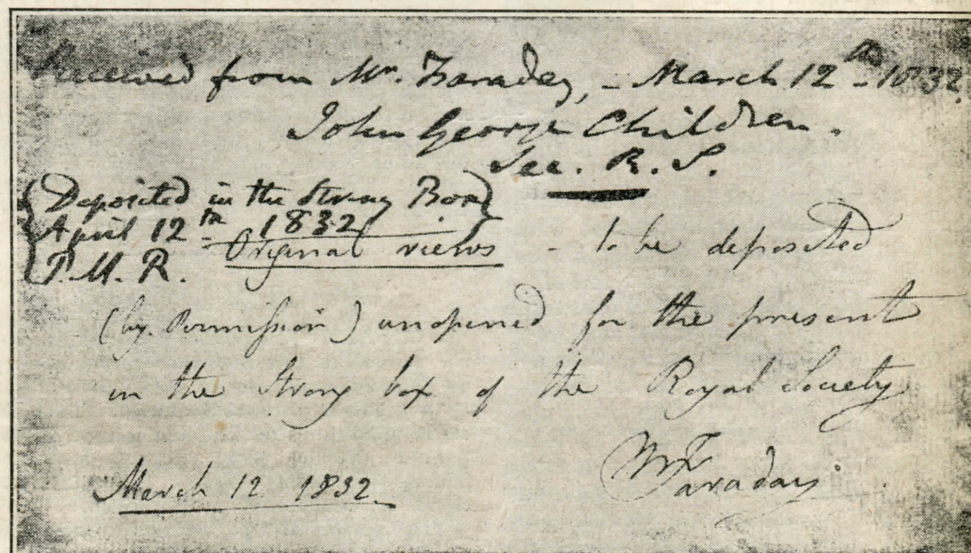 Received from Mr. Faraday, - March 12th - 1832.
John George Children.
Sec. R. S.
(Deposited in the Strong Box)
April 12th 1832
P. M. R.
Original views - to be deposited
(by Permission) unopened for the present
in the Strong box of the Royal Society
M Faraday
March 12 1832